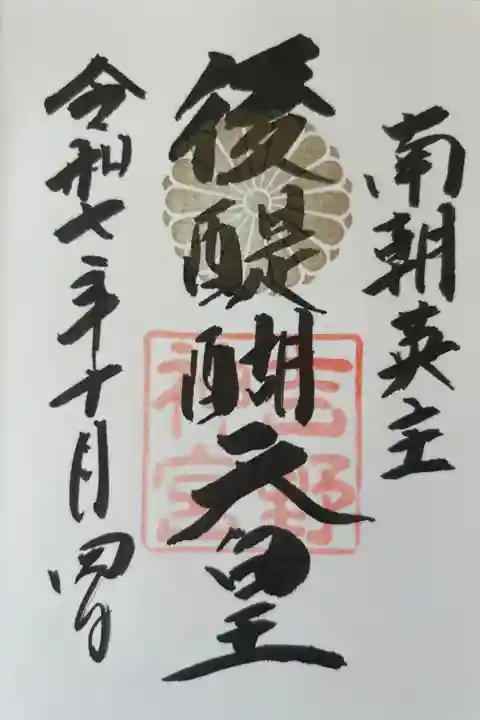 南朝英主
後醍醐天皇
吉野神宮
令和七年十月四日